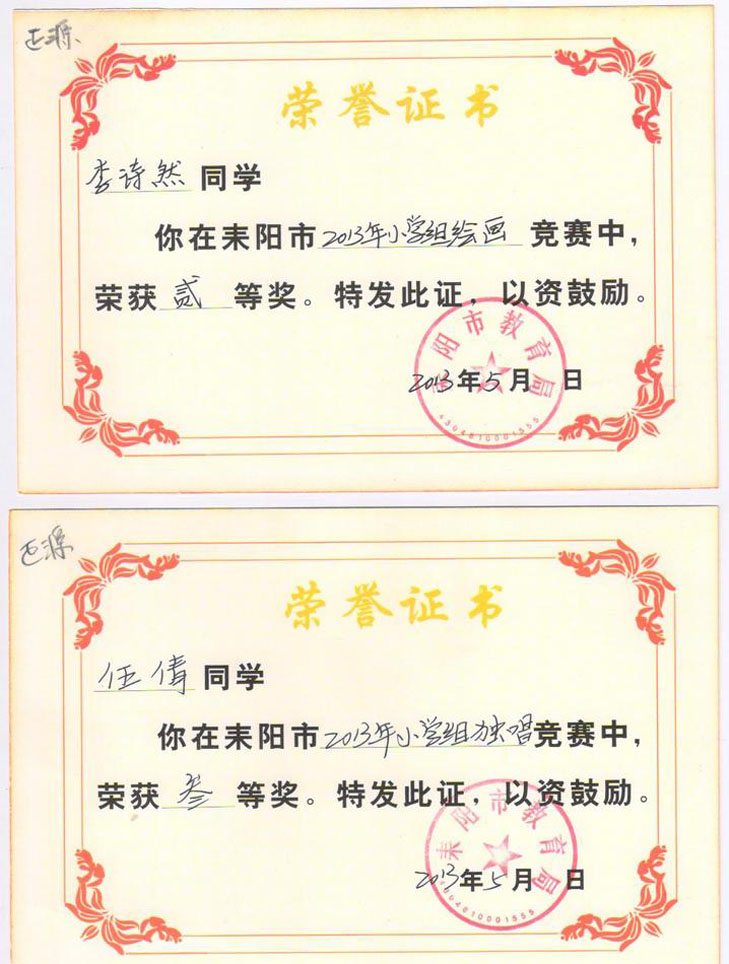 正源
荣誉证书
李诗然 同学
你在耒阳市 2013年小学组绘画 竞赛中，
荣获 贰 等奖。特发此证，以资鼓励。
耒阳市教育局
2013年5月 日
4304810001555
正源
荣誉证书
伍倩 同学
你在耒阳市 2013年小学组独唱 竞赛中，
荣获 叁 等奖。特发此证，以资鼓励。
耒阳市教育局
2013年5月 日
4304810001555